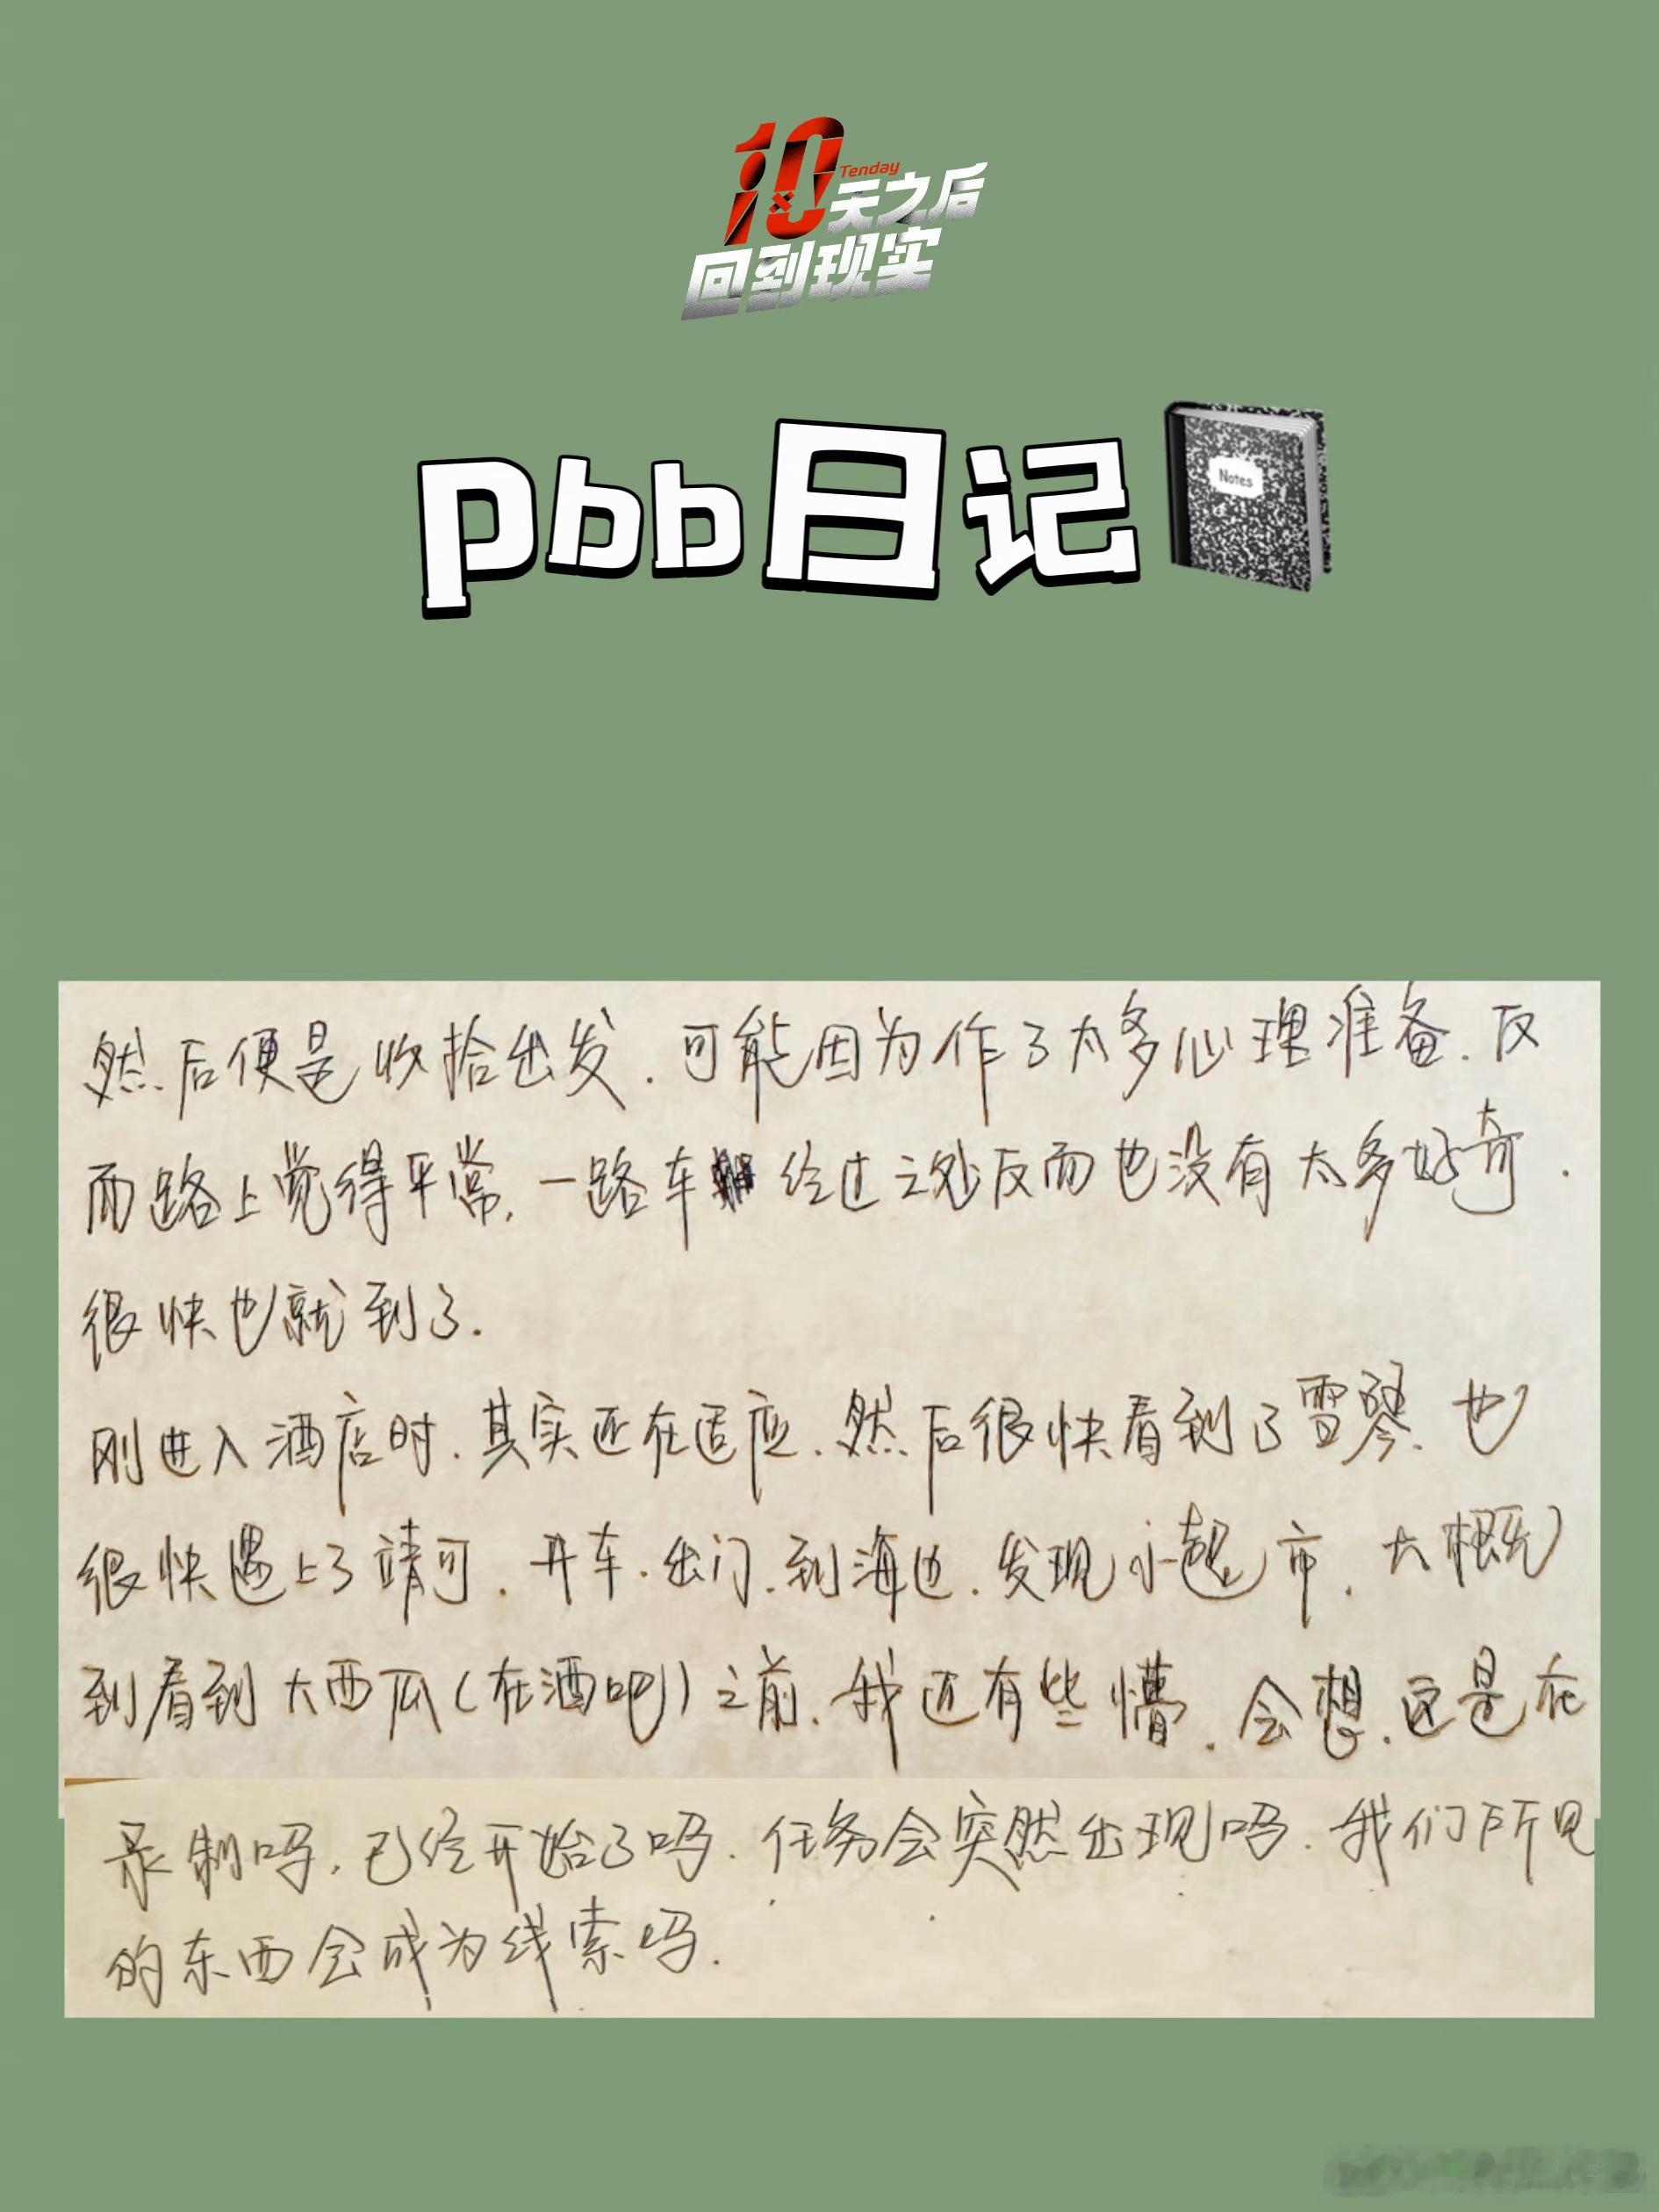 10天之后
Tenday
回到现实
pbb日记
Notes
然后便是收拾出发.可能因为作了太多心理准备.反
而路上觉得平常,一路车经过之处反而也没有太多好奇.
很快也就到了.
刚进入酒店时.其实还在适应.然后很快看到了雪琴.也
很快遇上了靖可.开车.出门.到海边.发现小超市.大概
到看到大西瓜(在酒吧)之前.我还有些懵.会想.这是在
录制吗.已经开始了吗.任务会突然出现吗.我们所见
的东西会成为线索吗.